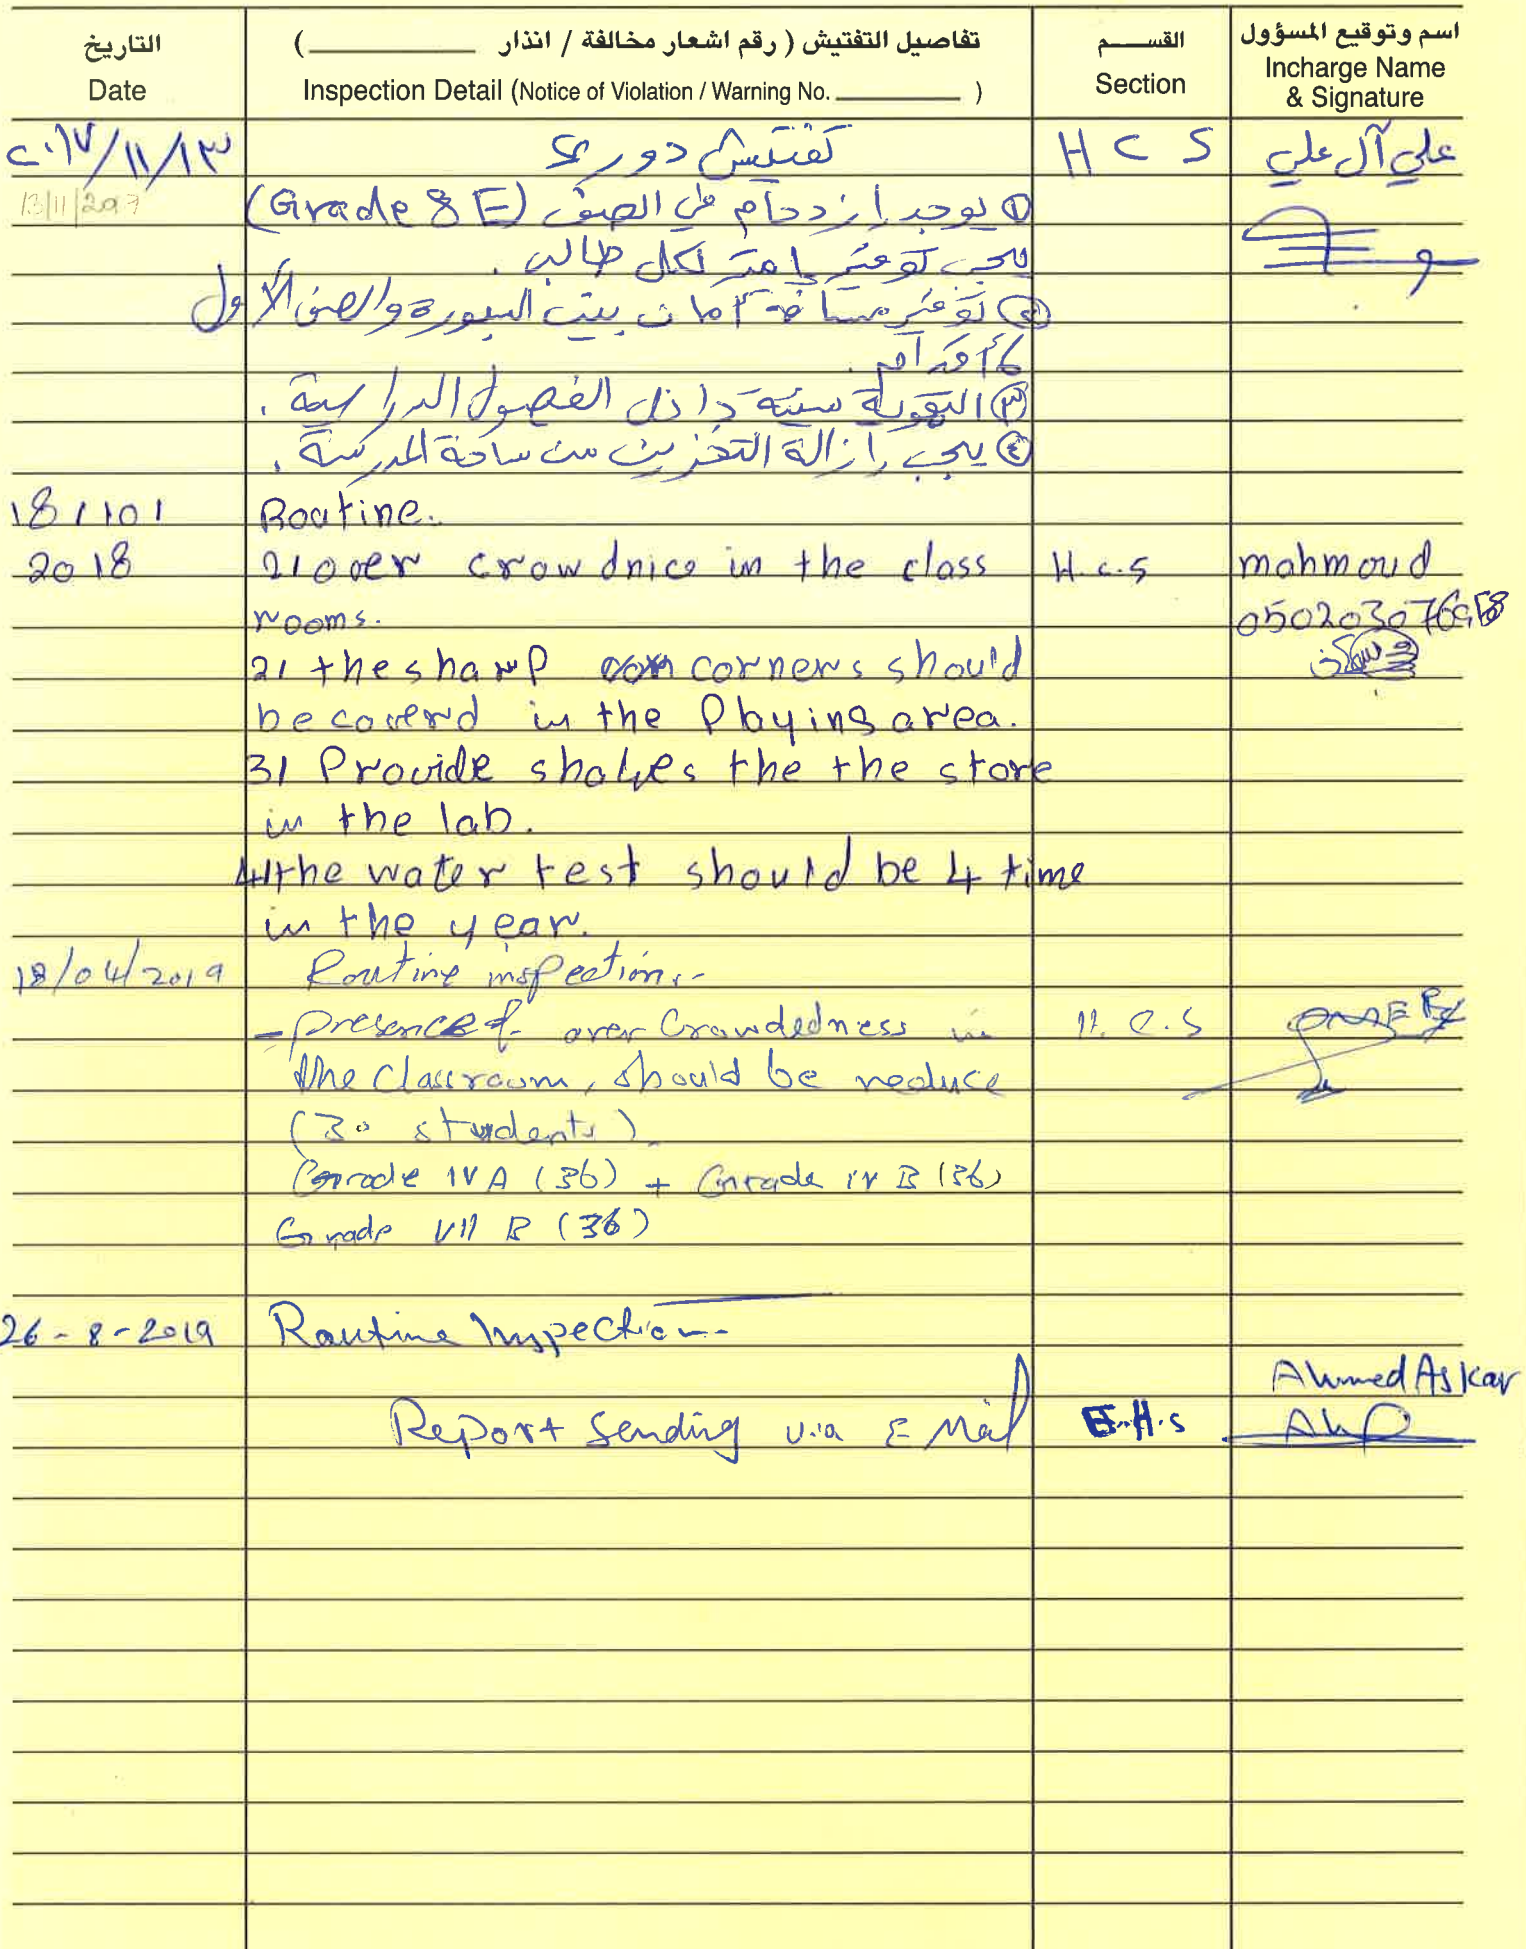 التاريخ
Date
تفاصيل التفتيش ( رقم اشعار مخالفة / انذار ـــــــــــــ )
Inspection Detail (Notice of Violation / Warning No. __________ )
القســـم
Section
اسم وتوقيع المسؤول
Incharge Name
& Signature
٢٠١٧/١١/١٣ تفتيش دوري H C S علي آل علي
13/11/2017
① يوجد ازدحام في الصف (Grade 8 E)
يجب توفير ١ متر لكل طالب .
② توفير مسافة أمان بين السبورة والصف الأول
٦ أقدام .
③ التهوية سيئة داخل الفصول الدراسية .
④ يجب إزالة التخزين من ساحة المدرسة .
18/101 Routine.
2018 21 over crowdnice in the class H.c.s mahmoud
rooms.
21 the sharp corners should
be coverd in the Playing area.
31 Provide shalves the the store
in the lab.
41 the water test should be 4 time
in the year.
18/04/2019 Routine inspection.-
- presence of over Crowdedness in H.C.S
the Classroom, should be reduce
(30 students).
Grade IV A (36) + Grade IV B (36)
Grade VII B (36)
26-8-2019 Routine Inspection-
Ahmed Askar
Report Sending via E Mail E.H.s